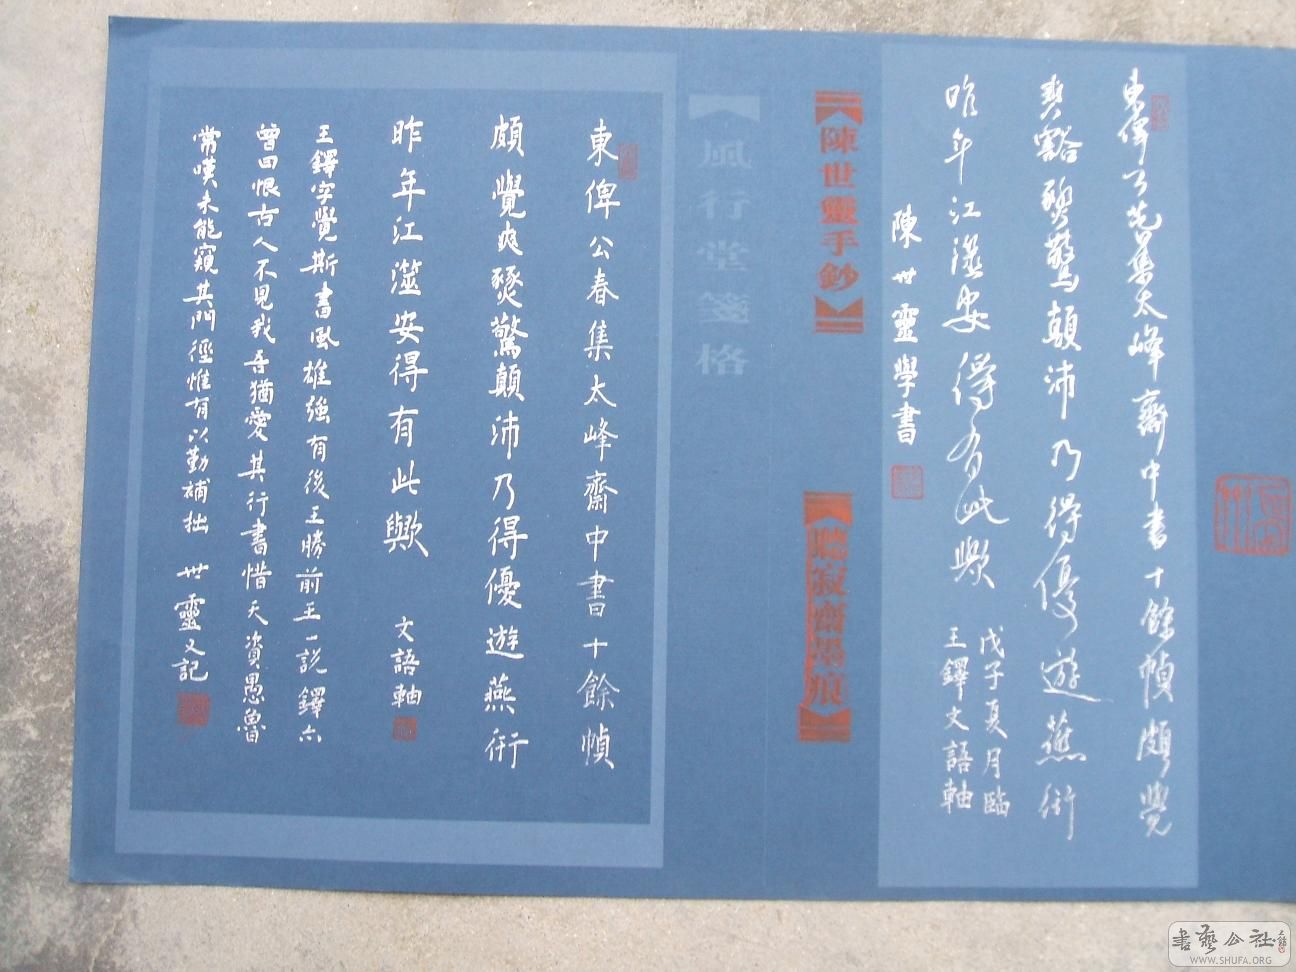 東俾公先集太峰齋中書十餘幀頗覺
爽豁驚顛沛乃得優遊蕪術
昨年江澨安得有此歟
戊子夏月臨
王鐸文語軸
陳世靈學書
陳世靈手鈔
聽寂齋墨痕
風行堂箋格
東俾公春集太峰齋中書十餘幀
頗覺爽驚顛沛乃得優遊燕術
昨年江澨安得有此歟
文語軸
王鐸字覺斯書風雄強有後王勝前王一說鐸亦
曾曰恨古人不見我吾猶愛其行書惜天資愚魯
常嘆未能窺其門徑惟有以勤補拙
世靈又記
書藝公社
WWW.SHUFA.ORG